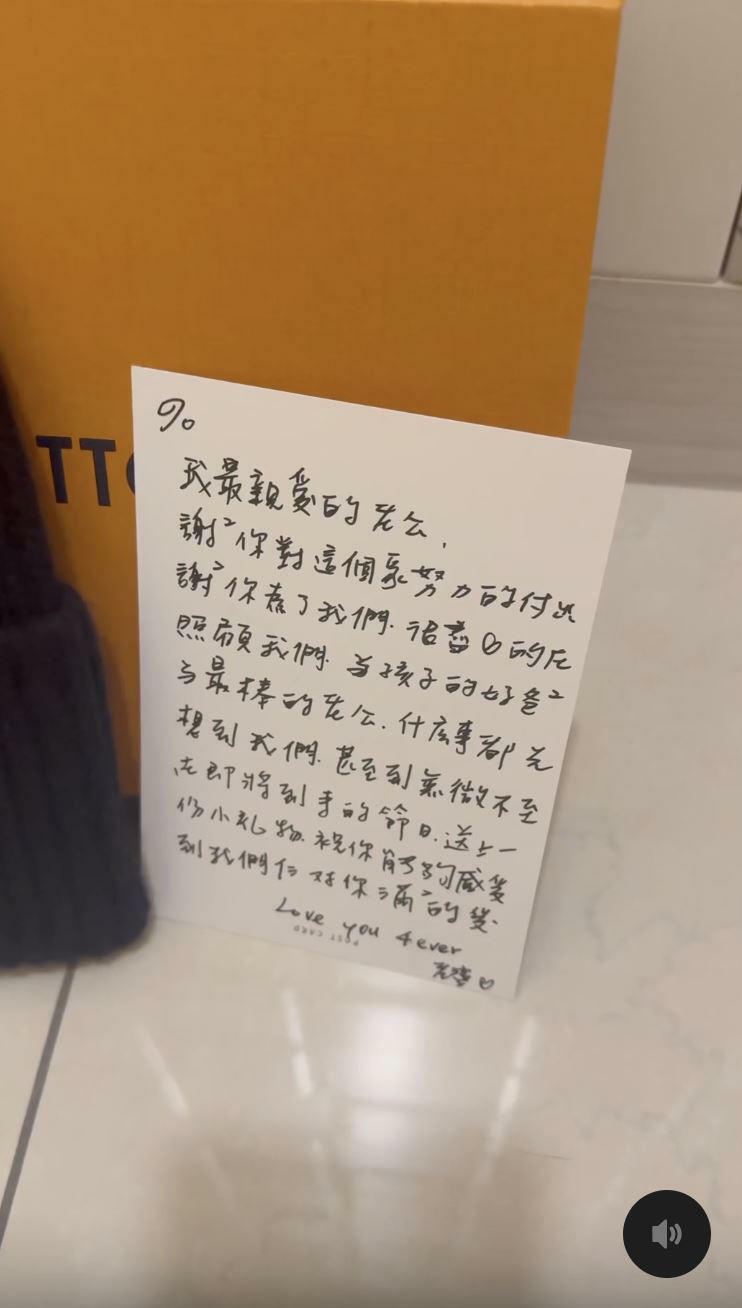 TTO
To
我最親愛的老公,
謝²你對這個家努力的付出
謝²你為了我們. 的在
照顧我們. 當孩子的好爸²
與最棒的老公. 什麼事都先
想到我們. 甚至到無微不至
在即將到來的節日. 送上一
份小礼物. 祝你能夠感受
到我們仨对你滿²的愛.
Love you 4ever
POST CARD
老婆♡